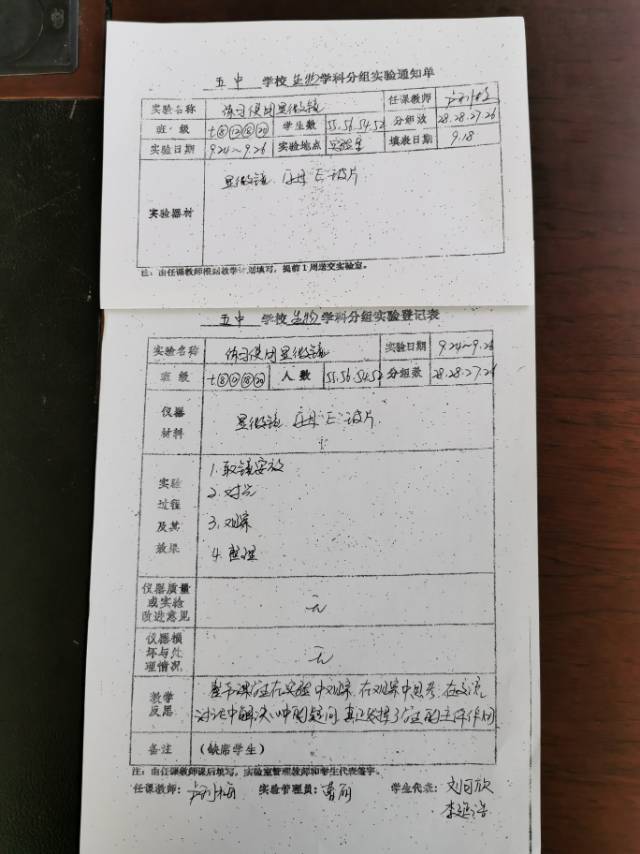 五中 学校 生物 学科分组实验通知单
实验名称 练习使用显微镜 任课教师
班级 七⑧⑫⑱⑳ 学生数 55.56.54.52 分组数 28.28.27.26
实验日期 9.24～9.26 实验地点 实验室 填表日期 9.18
实验器材 显微镜 字母"E"玻片
注：由任课教师根据教学计划填写，提前1周送交实验室。
五中 学校 生物 学科分组实验登记表
实验名称 练习使用显微镜 实验日期 9.24～9.26
班级 七⑧⑫⑱⑳ 人数 55.56.54.52 分组数 28.28.27.26
仪器材料 显微镜 字母"E"玻片
实验过程及其效果
1.取镜安放
2.对光
3.观察
4.整理
仪器质量或实验改进意见 无
仪器损坏与处理情况 无
教学反思 整节课学生在实验中观察，在观察中思考，在交流，
讨论中解决心中的疑问，真正发挥了学生的主体作用
备注 （缺席学生）
注：由任课教师课后填写，实验室管理教师和学生代表签字。
任课教师： 实验管理员： 学生代表：刘可欣